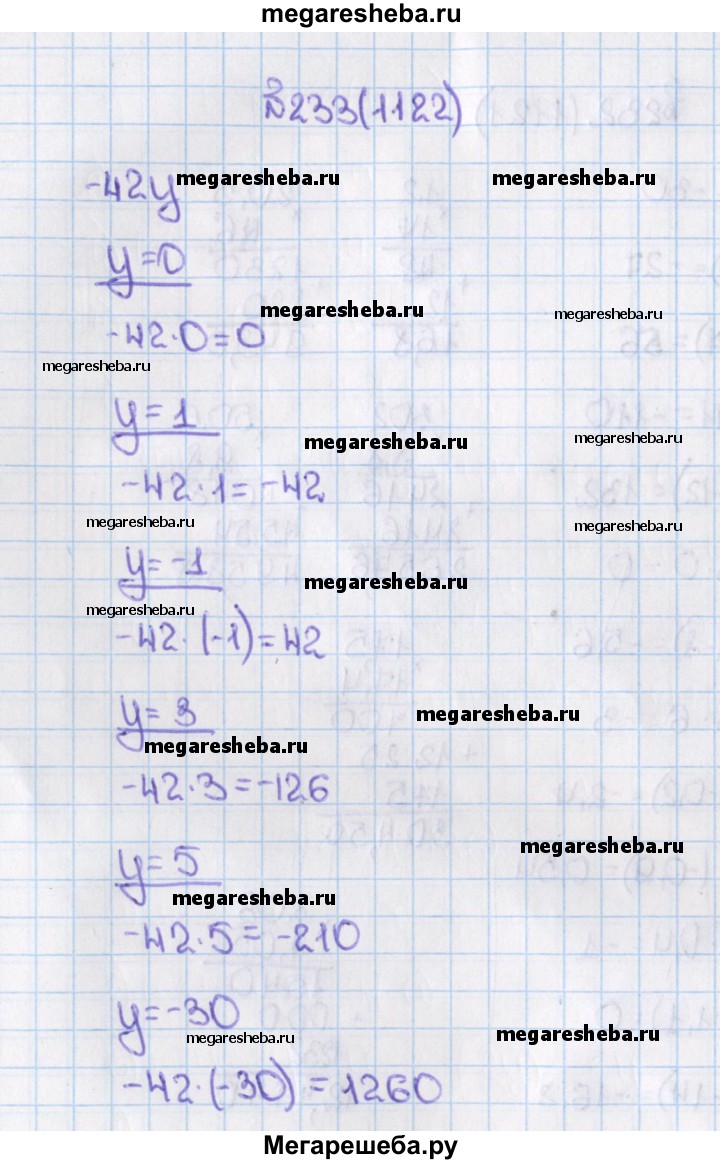 megaresheba.ru
№233(1122)
-42y megaresheba.ru megaresheba.ru
y=0
megaresheba.ru megaresheba.ru
-42·0=0
megaresheba.ru
y=1
megaresheba.ru megaresheba.ru
-42·1=-42
megaresheba.ru megaresheba.ru
y=-1
megaresheba.ru
megaresheba.ru
-42·(-1)=42
y=3
megaresheba.ru
megaresheba.ru
-42·3=-126
y=5
megaresheba.ru
megaresheba.ru
-42·5=-210
y=-30
megaresheba.ru megaresheba.ru
-42·(-30)=1260
Мегарешеба.ру